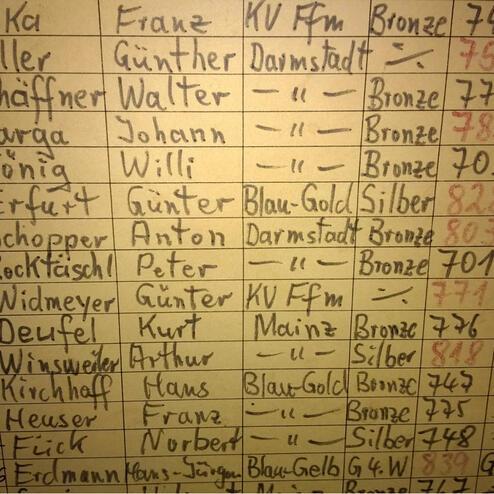 Ka Franz KV Ffm Bronze 74
ller Günther Darmstadt ·/. 75
häffner Walter — " — Bronze 77
arga Johann — " — Bronze 78
önig Willi — " — Bronze 70
Erfurt Günter Blau-Gold Silber 82
chopper Anton Darmstadt Bronze 80
ocktäschl Peter — " — Bronze 701
Widmeyer Günter KV Ffm ·/. 771
Deufel Kurt Mainz Bronze 776
Winsweiler Arthur — " — Silber 818
Kirchhoff Hans Blau-Gold Bronze 747
Heuser Franz — " — Bronze 775
Fück Norbert — " — Silber 748
Erdmann Hans-Jürgen Blau-Gelb G 4. W 839 G